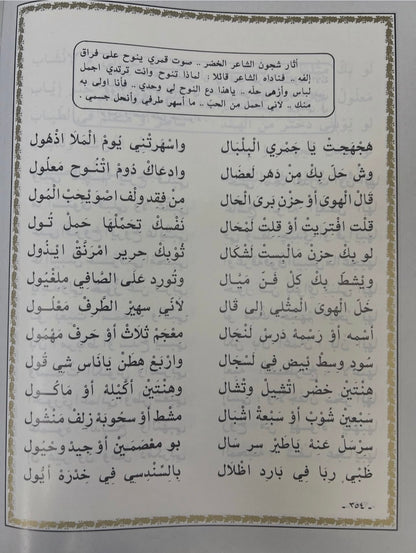 أثار شجون الشاعر الخضر .. صوت قمري ينوح على فراق
إلفه .. فناداه الشاعر قائلا : لماذا تنوح وانت ترتدي اجمل
لباس وأزهى حله .. ياهذا دع النوح لي وحدي .. فأنا اولى به
منك .. لاني احمل من الحب .. ما أسهر طرفي وأنحل جسمي .
هجهجت يا جمري البلبال واسهرتني يوم الملا اذهول
وش حل بك من دهر لعضال وادعاك دوم اتنوح معلول
قال الهوى أو حزن برى الحال من فقد ولف اصويحب المول
قلت افتريت أو قلت لمحال نفسك تحملها حمل تول
لو بك حزن مالبست لشكال توبك حرير امرنق ايذول
وينشط بك كل فن ميال وتورد على الصافي ملغيول
خل الهوى المثلي إلى قال لاني سهير الطرف معلول
أسمه أو رسمه درس لنجال معجم ثلاث أو حرف مهمول
سود وسط بيض في لسجال واربع هطن ياناس شي قول
هنتين خضر اتشيل وتشال وهنتين أكيله أو ماكول
سبعين شوب أو سبعة اشبال مشط أو سحوبة زلف منشول
سرسل عنه ياطير سر سال بو معضمين أو جيد وحيول
ظبي ربا في بارد اظلال بالسندسي في خدره أيول
- ٣٥٤ -